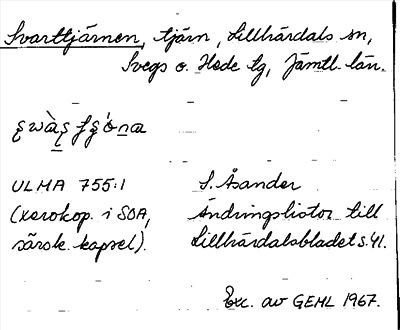 Svarttjärnen, tjärn, Lillhärdals sn,
Svegs o. Hede tg, Jämtl. län.
ULMA 755:1
(xerokop. i SOA,
särsk. kapsel).
S. Åsander
Ändringslistor till
Lillhärdalsbladet s. 41.
Exc. av GEHL 1967.